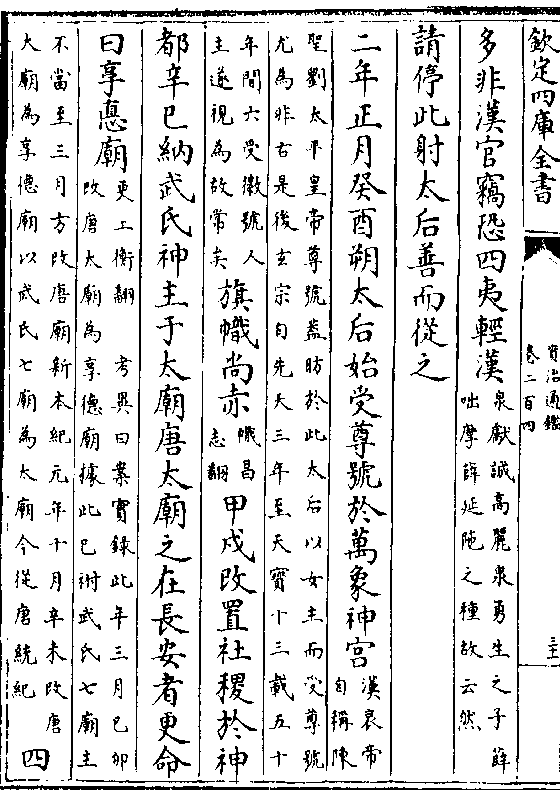 欽定四庫全書
資治通鑑
卷二百四
多非漢官竊恐四夷輕漢泉獻誠高麗泉男生之子薛
咄摩薛延陁之種故云然
請停此射太后善而從之
二年正月癸酉朔太后始受尊號於萬象神宫漢哀帝
自稱陳
聖劉太平皇帝尊號盖昉於此太后以女主而受尊號
尤為非古是後玄宗自先天三年至天寶十三載五十
年間六受徽號人
主遂視為故常矣旗幟尚赤幟昌
志翻甲戌改置社稷於神
都辛巳納武氏神主于太廟唐太廟之在長安者更命
曰享德廟更工衡翻 考異曰案實錄此年三月己卯
改唐太廟為享德廟據此已祔武氏七廟主
不當至三月方改唐廟新本紀元年十月辛未改唐
太廟為享德廟以武氏七廟為太廟今從唐統紀 四